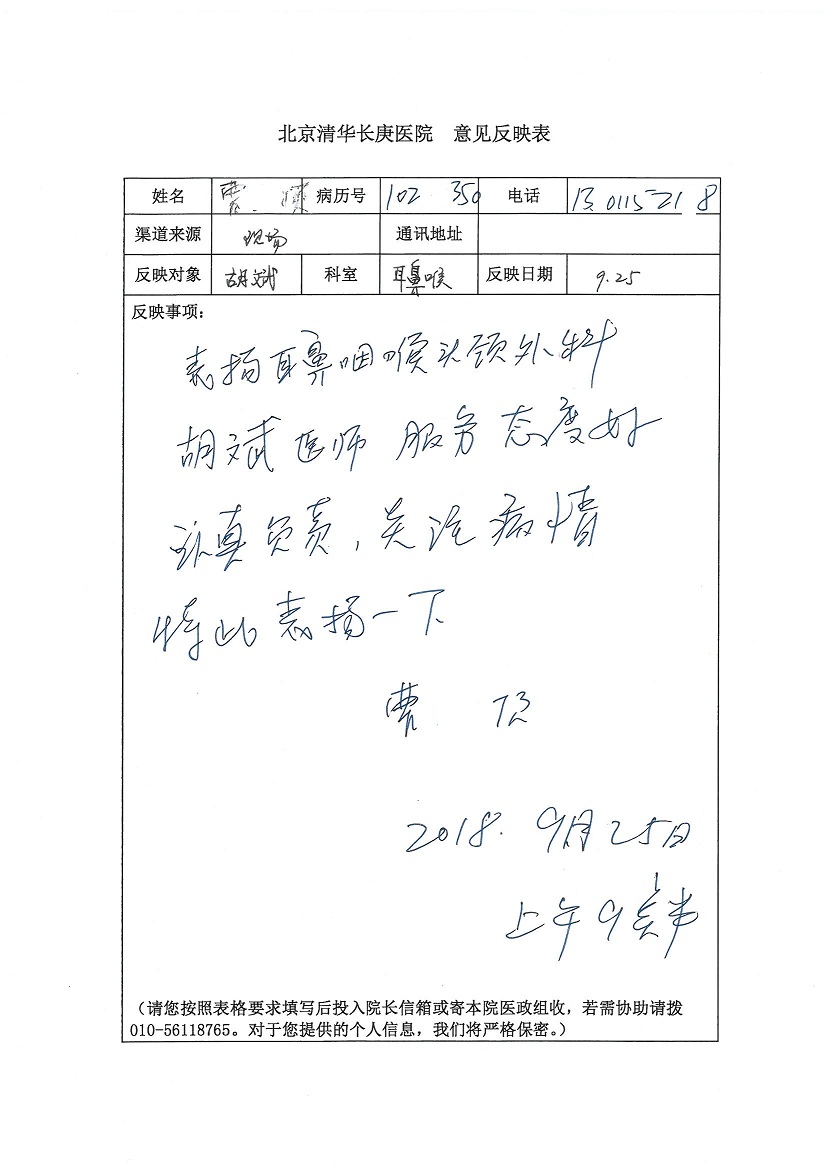 北京清华长庚医院 意见反映表
姓名 曹 病历号 102 350 电话 13 0115 21 8
渠道来源 现场 通讯地址
反映对象 胡斌 科室 耳鼻喉 反映日期 9.25
反映事项：
表扬耳鼻咽喉头颈外科
胡斌医师 服务态度好
认真负责，关注病情
特此表扬一下
曹
2018. 9月25日
上午9点半
（请您按照表格要求填写后投入院长信箱或寄本院医政组收，若需协助请拨
010-56118765。对于您提供的个人信息，我们将严格保密。）